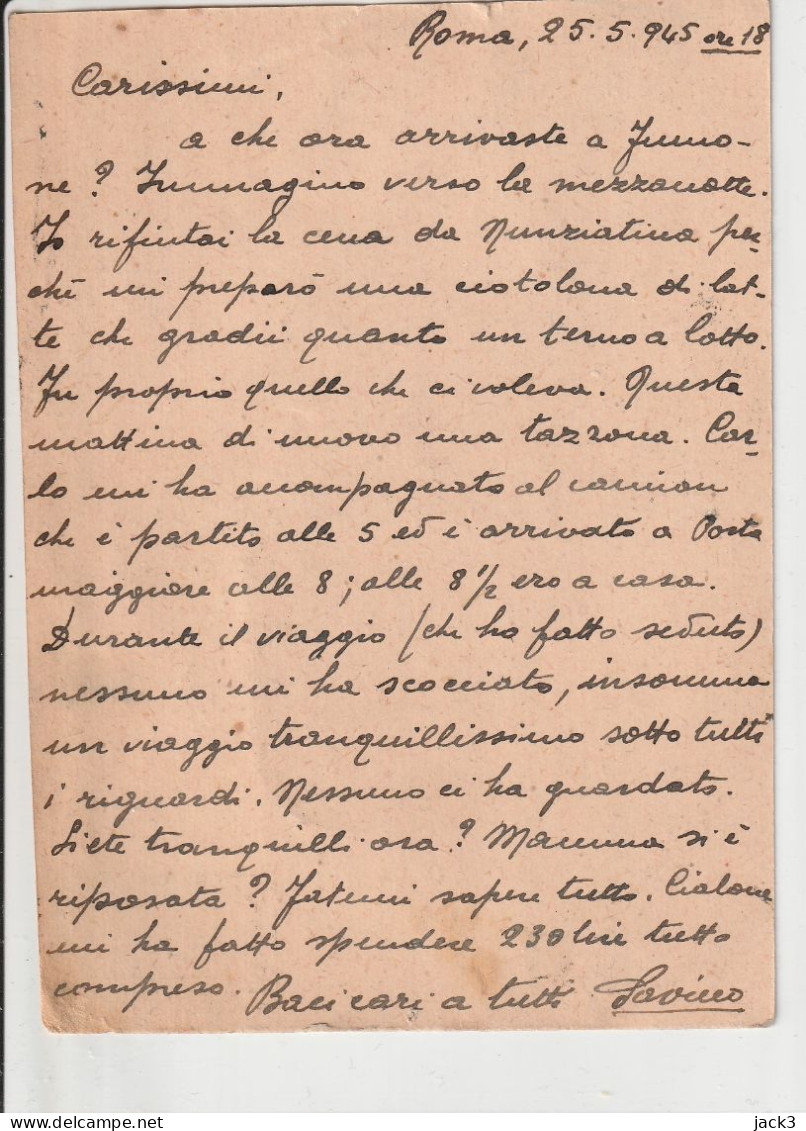 Roma, 25.5.945 ore 18
Carissimi,
a che ora arrivaste a Fumo-
ne? Immagino verso la mezzanotte.
Io rifiutai la cena da Nunziatina per-
ché mi preparò una ciotolona di lat-
te che gradii quanto un terno a lotto.
Fu proprio quello che ci voleva. Questa
mattina di nuovo una tazzona. Car-
lo mi ha accompagnato al camion
che è partito alle 5 ed è arrivato a Porta
maggiore alle 8; alle 8 1/2 ero a casa.
Durante il viaggio (che ho fatto seduto)
nessuno mi ha scocciato, insomma
un viaggio tranquillissimo sotto tutti
i riguardi. Nessuno ci ha guardato.
Siete tranquilli ora? Mamma si è
riposata? Fatemi sapere tutto. Cialone
mi ha fatto spendere 230 lire tutto
compreso. Baci cari a tutti Savino
jack3